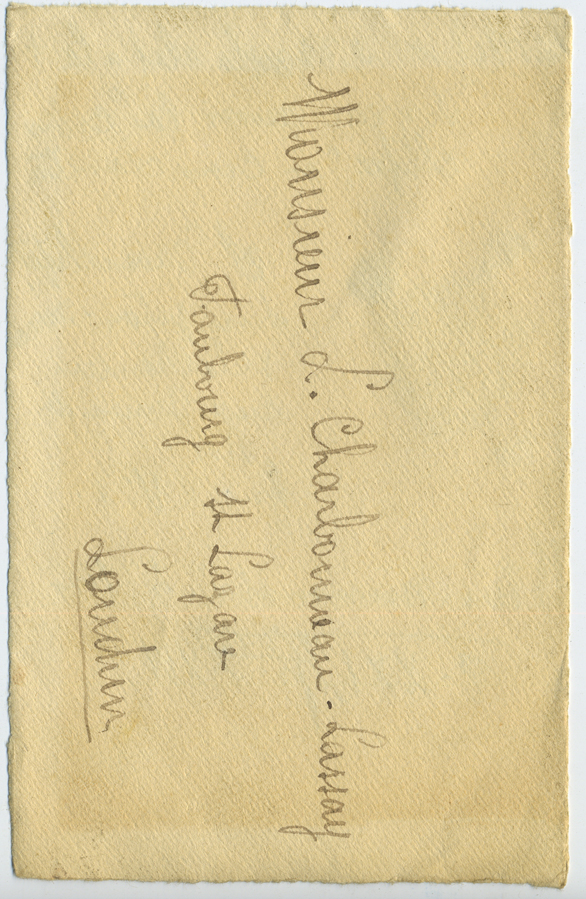 Monsieur L. Charbonneau-Lassay
Faubourg St Lazare
Loudun